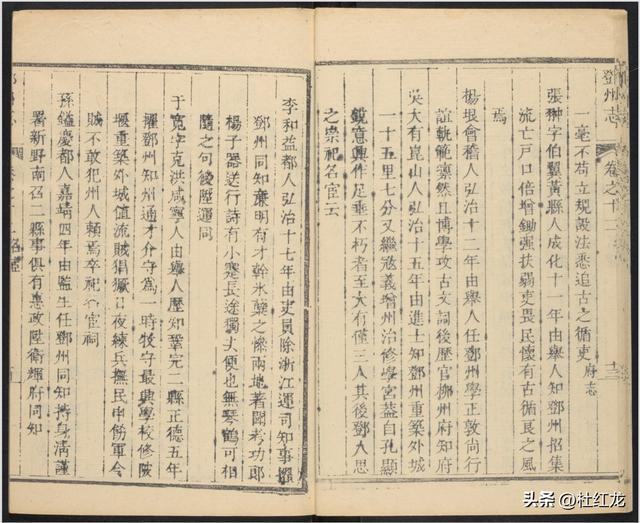 鄧州志
卷之十二
一毫不苟立規設法悉追古之循吏府志
張翀字伯翼黃縣人成化十一年由舉人知鄧州招集
流亡戶口倍增鋤強扶弱吏畏民懷有古循良之風
焉
楊垠會稽人弘治十二年由舉人任鄧州學正敦尚行
誼軌範凜然且博學攻古文詞後歷官柳州府知府
吳大有崑山人弘治十五年由進士知鄧州重築外城
一十五里七分又繼寇義增州治修學宮葢自孔顯
饒意興作足垂不朽者至大有僅三人其後鄧人思
之崇祀名宦云
李和益都人弘治十七年由吏員除浙江運司知事擢
鄧州同知廉明有才幹氷櫱之慘兩地著聞考功郎
楊子器送行詩有小蹇長途獨丈便也無琴鶴可相
隨之句後歷運同
于寬字克洪咸寧人由舉人歷知鞏完二縣正德五年
擢鄧州知州通才介守爲一時牧守最興學校修陂
堰重築外城値流賊猖獗日夜練兵撫民申飭軍令
賊不敢犯州人賴焉卒祀名宦祠
孫鑑慶都人嘉靖四年由監生任鄧州同知持身淸謹
署新野南召二縣事俱有惠政陞衛輝府同知
头条 @杜红龙